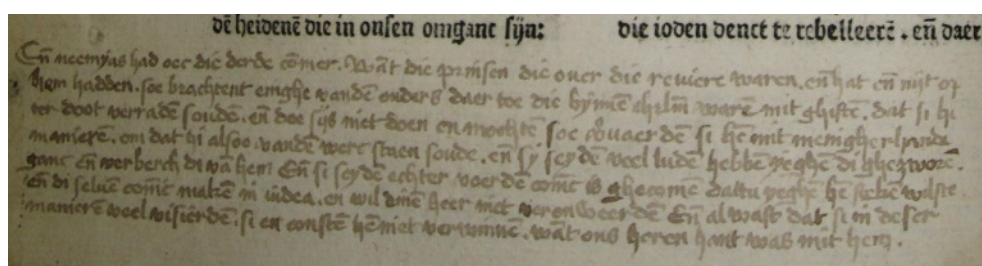 dē heidenē die in onsen omganc sijn:
die ioden denct te rebelleerē . en̄ daer
En̄ neemyas had oec die derde cōmer. Wāt die prinsen die ouer die reuiere waren, en̄ hat en̄ nijt op
hem hadden. soe brachtent enighe vandē ouders daer toe die bynnē ihrlm̄ warē mit ghiftē. dat si hē
ter doot verradē soudē. en̄ doe sijs niet doen en mochtē soe veruaerdē si hē mit menigherhande
manierē. om dat hi alsoe vandē werc staen soude. en̄ sy seydē veel ludē hebbē teghē di ghezworē.
ganc en̄ verberch di vā hem En̄ si seydē echter voer dē comīc is ghecomē dattu teghē hē stekē wilste.
En̄ di seluē comīc makē in iudea. en wildinē heer niet veronweerdē En̄ al wast dat si in deser
manierē veel visierdē. si en constē hē niet verwinnē. wāt ons heren hant was mit hem.